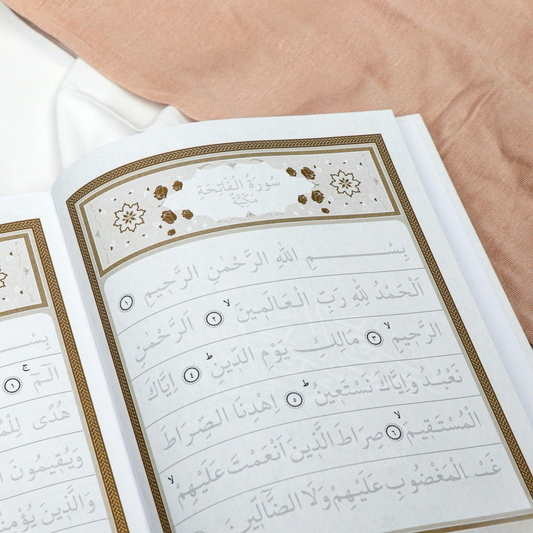 سُورَةُ الْفَاتِحَةِ
مَكِّيَّةٌ
بِسْمِ اللهِ الرَّحْمٰنِ الرَّحِيْمِ ١
اَلْحَمْدُ لِلّٰهِ رَبِّ الْعَالَمِيْنَ ۙ ٢ اَلرَّحْمٰنِ
الرَّحِيْمِ ۙ ٣ مَالِكِ يَوْمِ الدِّيْنِ ۜ ٤ اِيَّاكَ
نَعْبُدُ وَاِيَّاكَ نَسْتَعِيْنُ ۜ ٥ اِهْدِنَا الصِّرَاطَ
الْمُسْتَقِيْمَ ۙ ٦ صِرَاطَ الَّذِيْنَ اَنْعَمْتَ عَلَيْهِمْ ۙ
غَيْرِ الْمَغْضُوْبِ عَلَيْهِمْ وَلَا الضَّالِّيْنَ
الٓمٓ ۚ ١
هُدًى
وَيُقِيْمُوْنَ
وَالَّذِيْنَ